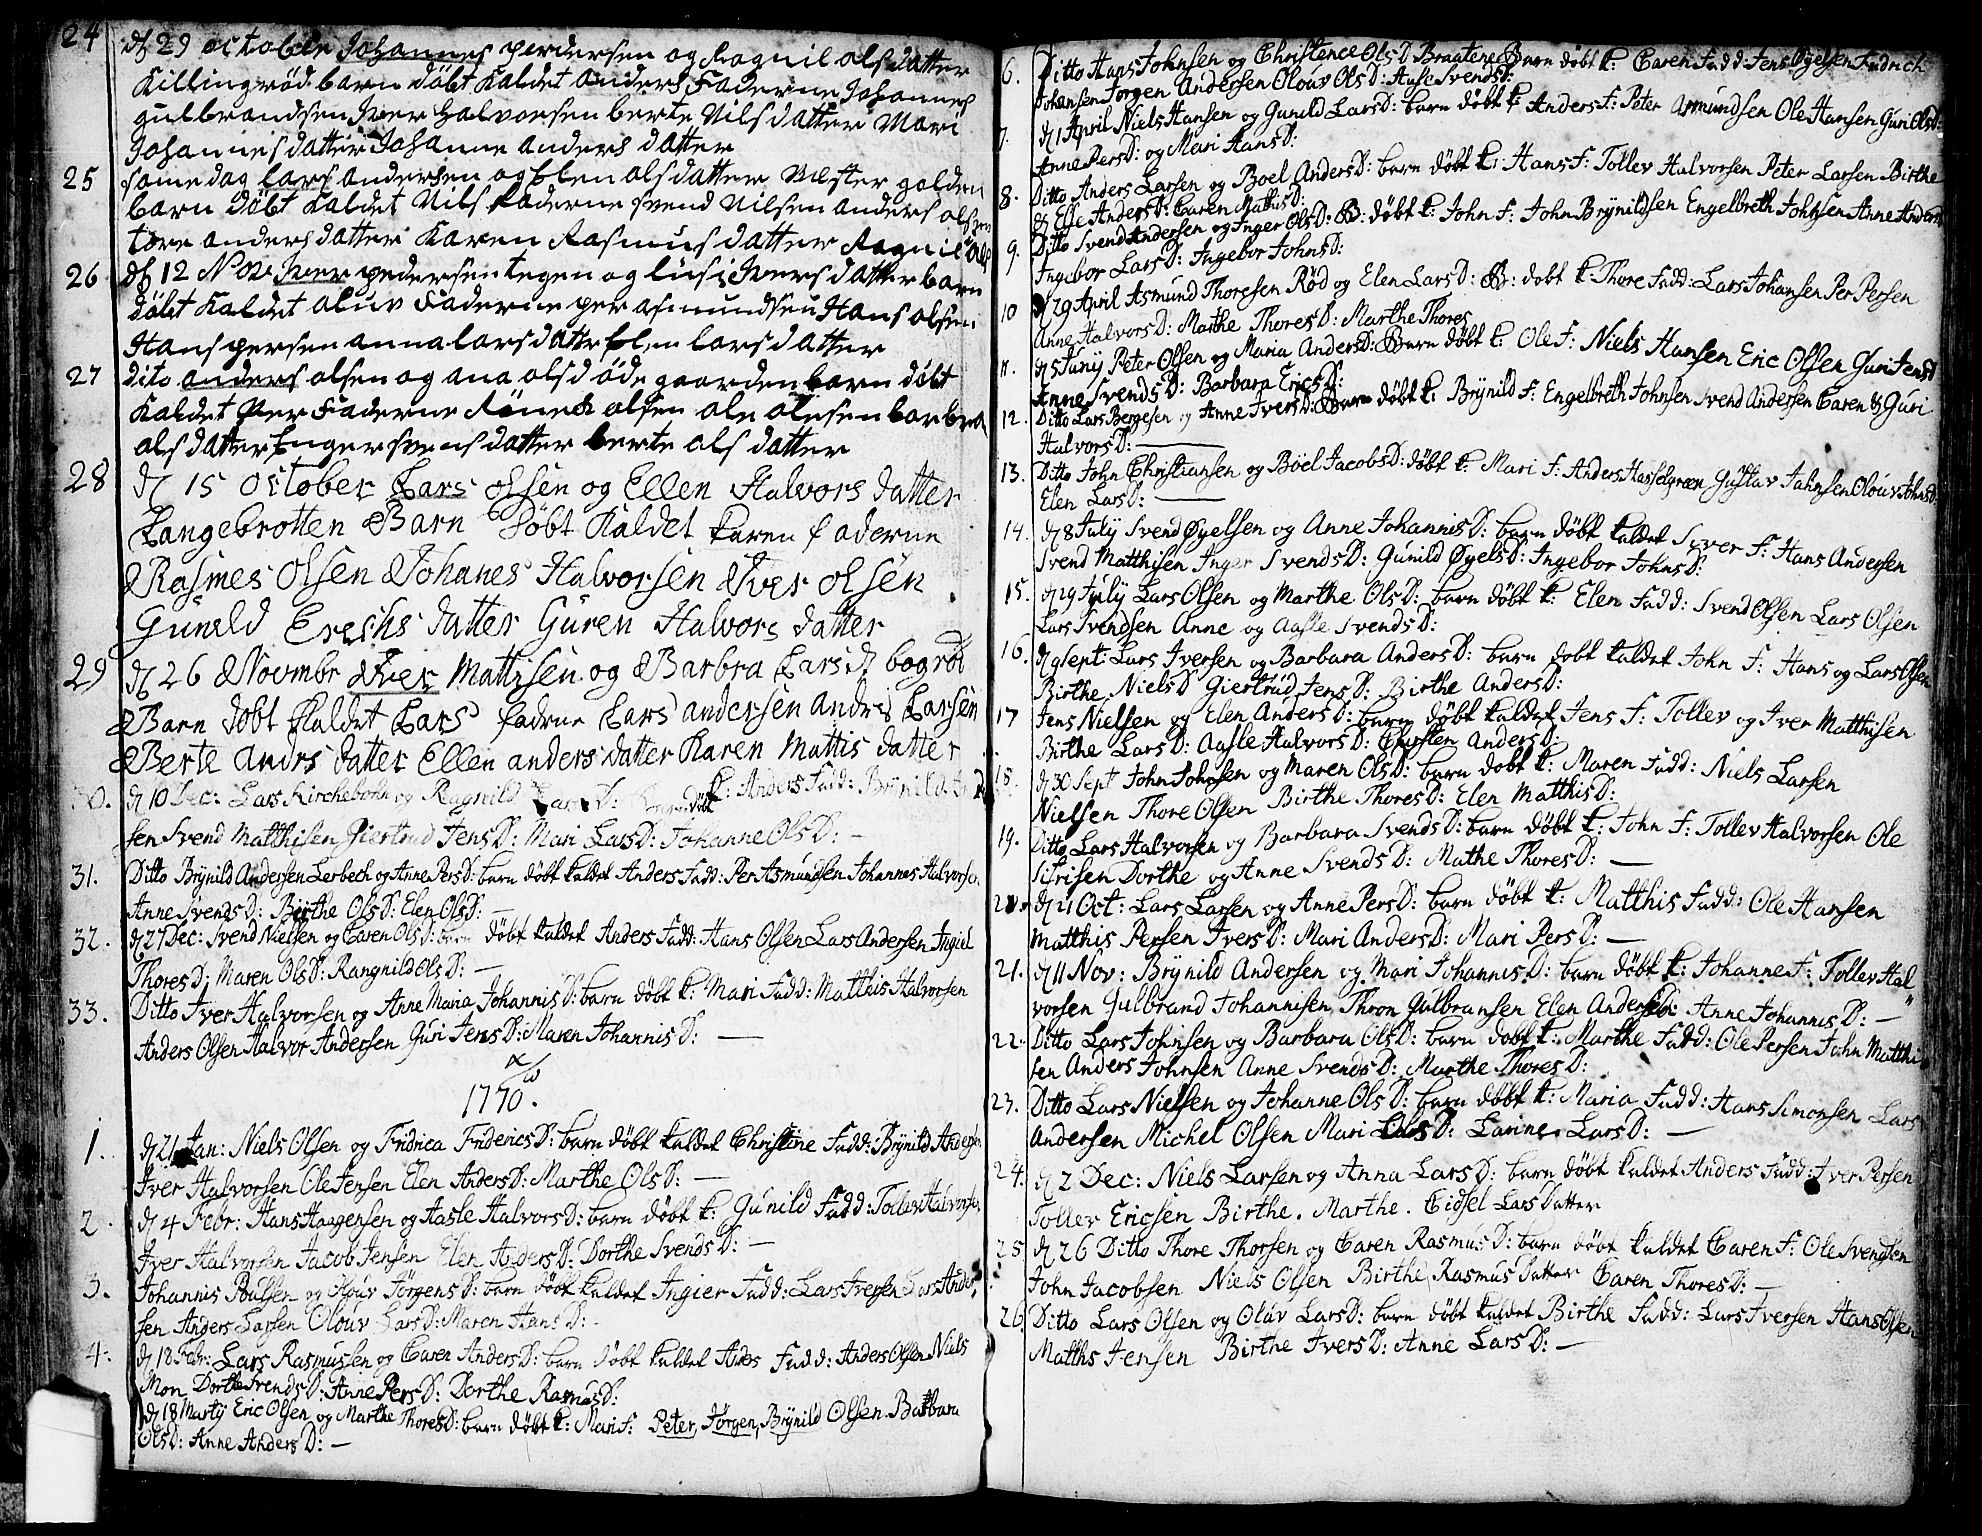 24 dϟ 29 october Johannes perdersen og Ragnil als datter
Killingrød barn døbt Kaldet anders Faderne Johannes
gulbrandsen Iver halvorsen berte Nils datter Mari
Johannes datter Johanne anders datter
25 same dag lars andersen og Elen als datter Mester golden
barn døbt Kaldet Nils Faderne svend Nilsen anders olsen
tore anders datter Karen Rasmus datter Ragnil als
26 dϟ 12 Nov Iver pedersen tegen og lusi Ivers datter barn
døbt Kaldet aluv Faderne per asmundsen Hans olsen
Hans persen anna lars datter Elen lars datter
27 dito anders olsen og ana als d øde gaarden barn døbt
Kaldet Per Faderne Rønech olsen ole olesen barbra
als datter Enger svens datter berte als datter
28 dϟ 15 October Lars olsen og Ellen Halvors datter
Langebrotten Barn døbt Kaldet Karen faderne
Rasmes Olsen Johanes Halvorsen Iver olsen
Guneld Erechs datter Guren Halvors datter
29 dϟ 26 Novmbr Iver Mattisen og Barbra Lars dϟ bogrød
Barn døbt Kaldet Lars fadrne Lars andersen andris Larsen
Berte andrs datter Ellen anders datter Karen Mattis datter
30. dϟ 10 Dec: Lars Kirchebohn og Ragnild Lars D: K: Anders Fadd: Brÿnild
sen Svend Matthisen Giertrud Jens D: Mari Lars D: Johanne Ols D: —
31. Ditto Brÿnild Andersen Lerbech og Anne Pers D: barn døbt kaldet Anders Fadd: Per Asmundsen Johannes Halvorsen
Anne Svends D: Birthe Ols D: Elen Ols D: —
32. dϟ 27 Dec: Svend Nielsen og Caren Ols D: barn døbt kaldet Anders Fadd: Hans Olsen Lars Andersen Ingiel
Thores D: Maren Ols D: Rangnild Ols D: —
33. Ditto Iver Halvorsen og Anne Maria Johannis D: barn døbt k: Mari Fadd: Matthis Halvorsen
Anders Olsen Halvor Andersen Guri Jens D: Maren Johannis D: —
α/ω
1770.
1. dϟ 21 Jan: Niels Olsen og Fridrica Friderics D: barn døbt kaldet Christine Fadd: Brÿnild Andersen
Iver Halvorsen Ole Jensen Elen Anders D: Marthe Ols D: —
2. dϟ 4 Febr: Hans Haagensen og Aasle Halvors D: barn døbt k: Gunild Fadd: Tollev Halvorsen
Iver Halvorsen Jacob Jensen Elen Anders D: Dorthe Svends D: —
3. Johannis Poulsen og Olouv Jørgens D: barn døbt kaldet Ingier Fadd: Lars Iversen Lars Ander,
sen Anders Larsen Olouv Lars D: Maren Hans D: -
4. dϟ 18 Febr: Lars Rasmussen og Caren Anders D: barn døbt kaldet Anders Fadd: Anders Olsen Niels
Mon Dorthe Svends D: Anne Pers D: Dorthe Rasmus D:
dϟ 18 Martÿ Eric Olsen og Marthe Thores D: barn døbt k: Mari F: Peter, Jørgen, Brÿnild Olsen Barbara
Ols D: Anne Anders D: —
6. Ditto Hans Johnsen og Christence Ols D: Bragtene Barn døbt k: Caren Fadd: Jens Øyelsen Fridrich
Johansen Jørgen Andersen Olouv Ols D: Aase Svends D:
7. dϟ 1 April Niels Hansen og Gunild Lars D: barn døbt k: Anders F: Peter Asmundsen Ole Hansen Guri Ols D:
Anne Pers D: og Mari Hans D:
8. Ditto Anders Larsen og Boel Anders D: barn døbt k: Hans F: Tollev Halvorsen Peter Larsen Birthe
& Else Anders D: Caren Mathis D:
9. Ditto Svend Andersen og Inger Ols D: B: døbt k: John F: John Brÿnildsen Engelbreth Johnsen Anne Anders D
Ingebor Lars D: Ingebor Johns D:
10 dϟ 29 April Asmund Thoresen Rød og Elen Lars D: B: dobt k: Thore Fadd: Lars Johansen Per Persen
Anne Halvors D: Marthe Thores D: Marthe Thores
11. dϟ 5 Junÿ Peter Olsen og Maria Anders D: Barn døbt k: Ole F: Niels Hansen Eric Olsen Guri Jens D
Anne Svends D: Barbara Erics D:
12. Ditto Lars Bergesen og Anne Ivers D: Barn døbt k: Brÿnild F: Engelbreth Johnsen Svend Andersen Caren & Guri
Halvors D: —
13. Ditto John Christiansen og Boel Jacobs D: døbt k: Mari F: Anders Hasselgreen Gustav Jahnsen Olouv Johns D:
Elen Lars D: —
14. dϟ 8 July Svend Øyelsen og Anne Johannis D: barn døbt kaldet Siver F: Hans Andersen
Svend Matthisen Inger Svends D: Gunild Øyels D: Ingebor Johns D:
15. dϟ 29 July Lars Olsen og Marthe Ols D: barn døbt k: Elen Fadd: Svend Olsen Lars Olsen
Lars Svendsen Anne og Aasle Svends D:
16. dϟ 9 Sept: Lars Iversen og Barbara Anders D: barn dobt kaldet John F: Hans og Lars Olsen
Birthe Niels D Giertrud Jens D: Birthe Anders D:
17 Jens Nielsen og Elen Anders D: barn døbt kaldet Jens F: Tollev og Iver Matthisen
Birthe Lars D: Aasle Halvors D: Chirsten Anders D:
18. dϟ 30 Sept John Johnsen og Maren Ols D: barn dobt k: Maren Fadd: Niels Larsen
Nielsen Thore Olsen Birthe Thores D: Elen Matthis D:
19. Ditto Lars Halvorsen og Barbara Svends D: barn døbt k: John F: Tollev Halvorsen Ole
Sifrisen Dorthe og Anne Svends D: Mathe Thores D: —
20. dϟ 21 Oct: Lars Larsen og Anne Pers D: barn døbt k: Matthis Fadd: Ole Hansen
Matthis Persen Ivers D: Mari Anders D: Mari Pers D: —
21. dϟ 11 Nov: Brÿnild Andersen og Mari Johannis D: barn døbt k: Johanne F: Tollev Hal
vorsen Gulbrand Johannisen Thron Gulbransen Elen Anders D: Anne Johannis D: —
22. Ditto Lars Johnsen og Barbara Ols D: barn døbt k: Marthe Fadd: Ole Persen John Matthi
sen Anders Johnsen Anne Svends D: Marthe Thores D:
23. Ditto Lars Nielsen og Johanne Ols D: barn døbt k: Maria Fadd: Hans Simonsen Lars
Andersen Michel Olsen Mari Lars D: Karine Lars D: —
24. dϟ 2 Dec: Niels Larsen og Anna Lars D: barn døbt kaldet Anders Fadd: Iver Persen
Tollev Ericsen Birthe. Marthe. Cidsel Lars Datter
25 dϟ 26 Ditto Thore Thorsen og Caren Rasmus D: barn døbt kaldet Caren F: Ole Svendsen
John Jacobsen Niels Olsen Birthe Rasmus Datter Caren Thores D: —
26 Ditto Lars Olsen og Olav Lars D: barn døbt kaldet Birthe Fadd: Lars Iversen Hans Olsen
Matths Jensen Birthe Ivers D: Anne Lars D: —